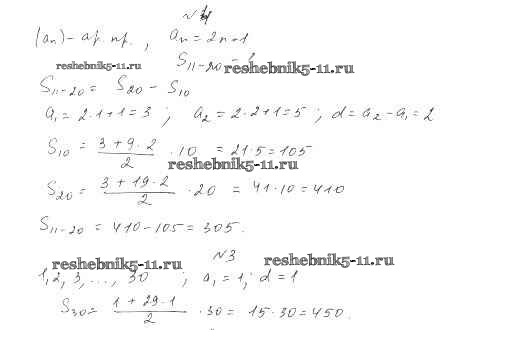 №
(aₙ) - ар. пр. , aₙ = 2n+1
S₁₁₋₂₀ - ?
reshebnik5-11.ru reshebnik5-11.ru
S₁₁₋₂₀ = S₂₀ - S₁₀
a₁ = 2·1+1=3 ; a₂ = 2·2+1=5 ; d = a₂-a₁ = 2
S₁₀ = (3+9·2)/2 · 10 = 21·5 = 105
reshebnik5-11.ru
S₂₀ = (3+19·2)/2 · 20 = 41·10 = 410
S₁₁₋₂₀ = 410-105 = 305.
№3
reshebnik5-11.ru reshebnik5-11.ru
1, 2, 3, ..., 30 ; a₁=1; d=1
S₃₀ = (1+29·1)/2 · 30 = 15·30 = 450.